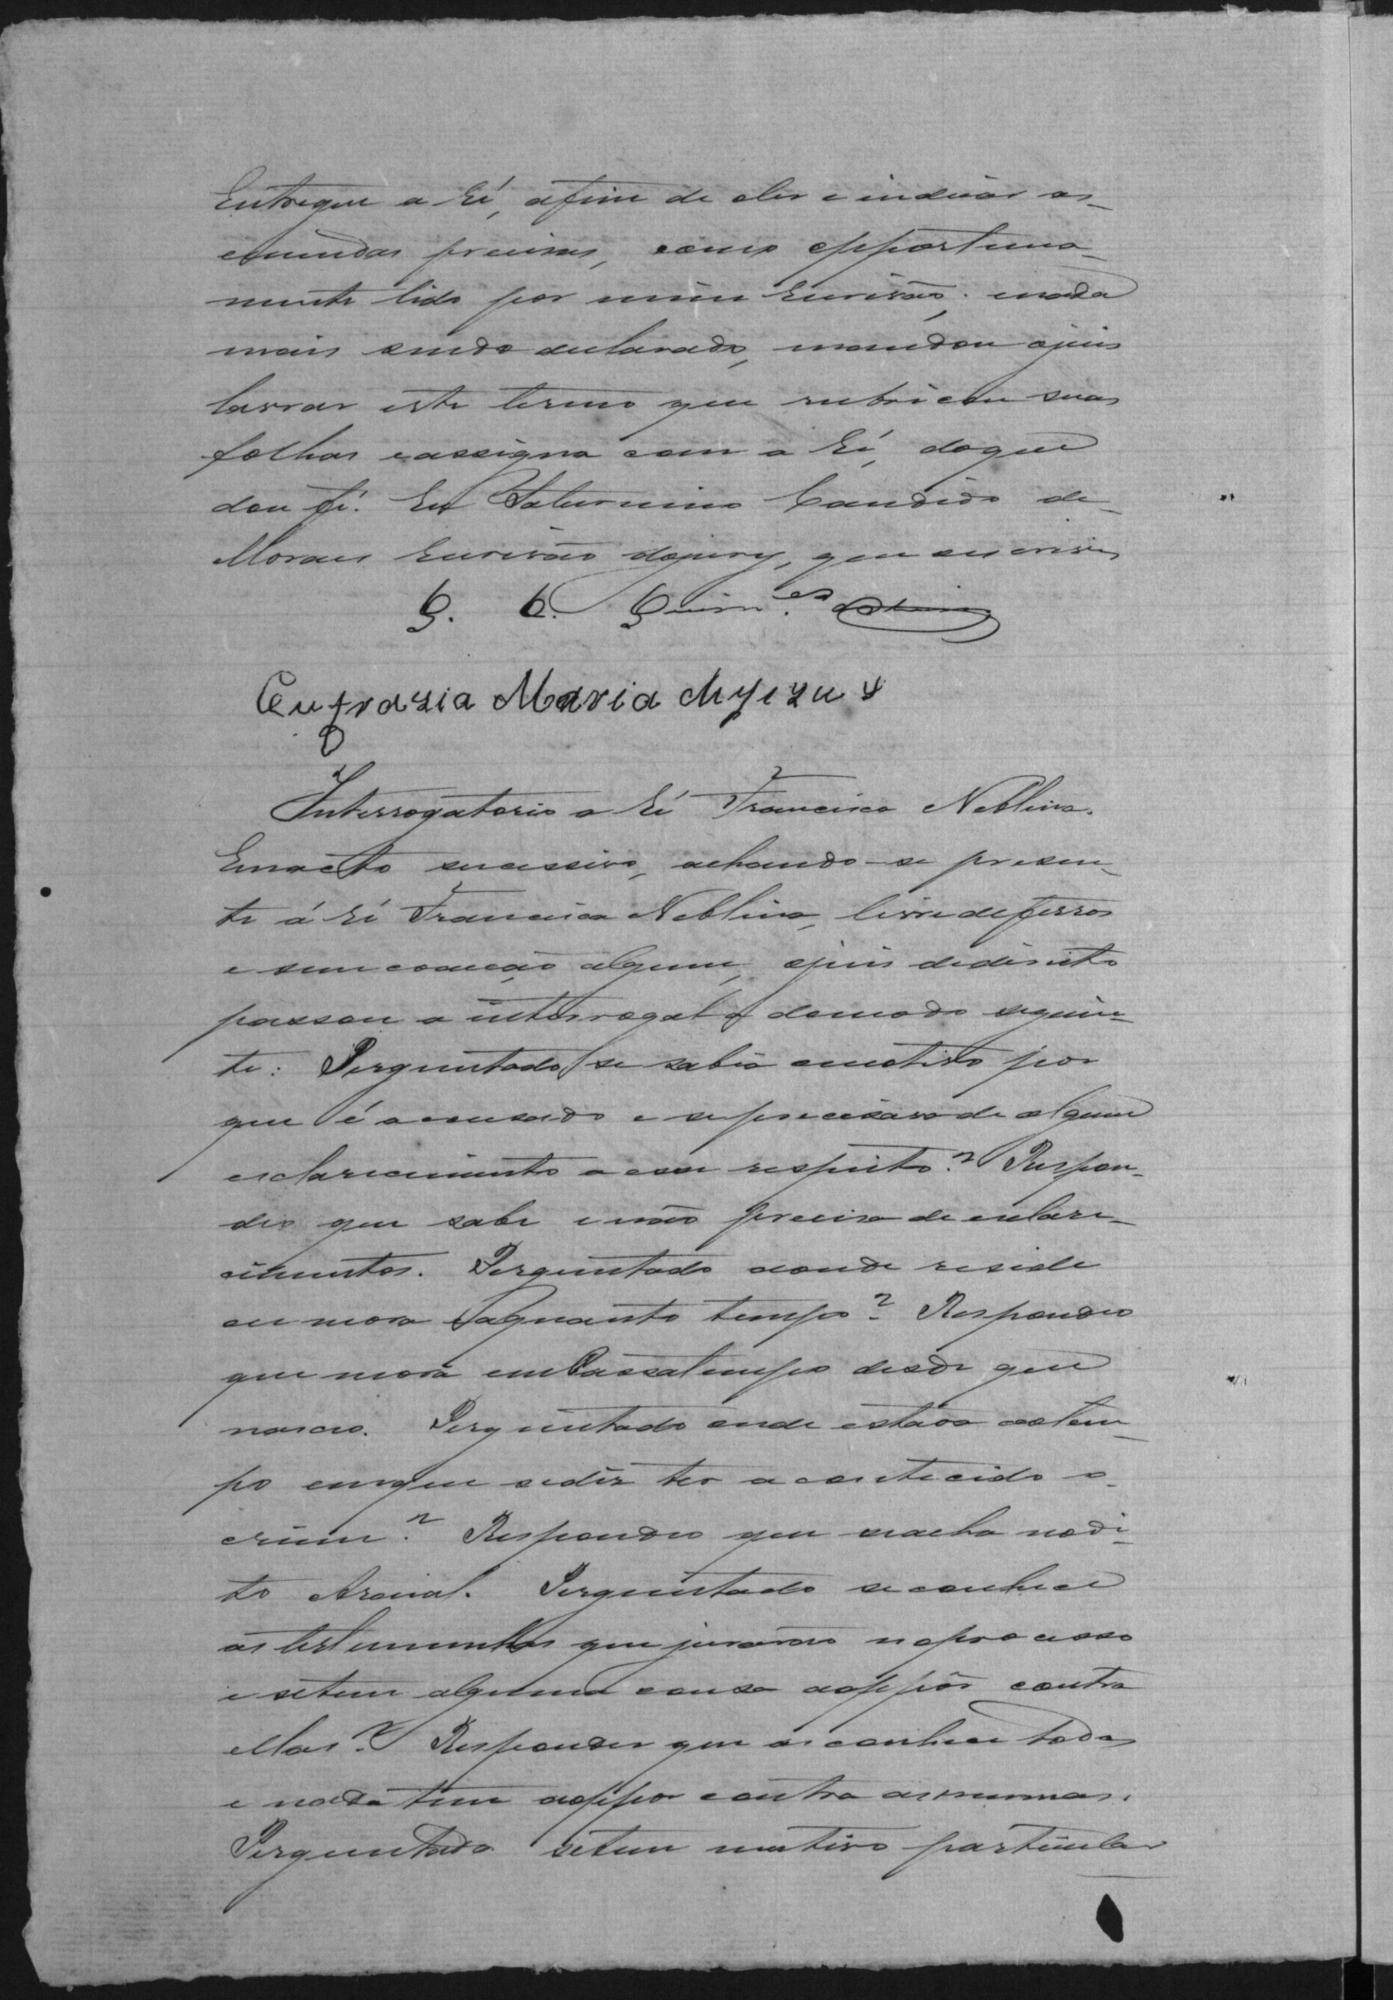 Entregue a Ré, afim de ler e indicar as
emendas precisas, como opportuna-
mente lido por mim Escrivão; e nada
mais sendo declarado, mandou o juis
lavrar este termo que rubricou suas
folhas e assigna com a Ré, do que
dou fé. Eu Saturnino Candido de
Moraes Escrivão do jury, que escrevi
G. C. Guim.es
Eufrazia Maria
Interrogatorio a Ré Francisca Neblina.
Em acto successivo, achando-se presen-
te á Ré Francisca Neblina, livre de ferros
e sem coacção alguma, o juis de direito
passou a interrogal-a do modo seguin-
te: Perguntado se sabia o motivo por
que é accusado e se precisava de algum
esclarecimento a esse respeito? Respon-
deo que sabe e não precisa de esclare-
cimentos. Perguntado aonde reside
ou mora e a quanto tempo? Respondeo
que mora em Passatempo desde que
nasceo. Perguntado onde estava ao tem-
po em que se diz ter acontecido o
crime? Respondeo que no di-
to Arraial. Perguntado se conhece
as testemunhas que jurarão no processo
e se tem alguma cousa a oppôr contra
ellas? Respondeo que as conhece todas
e nada tem a oppor contra as mesmas.
Perguntado se tem motivo particular